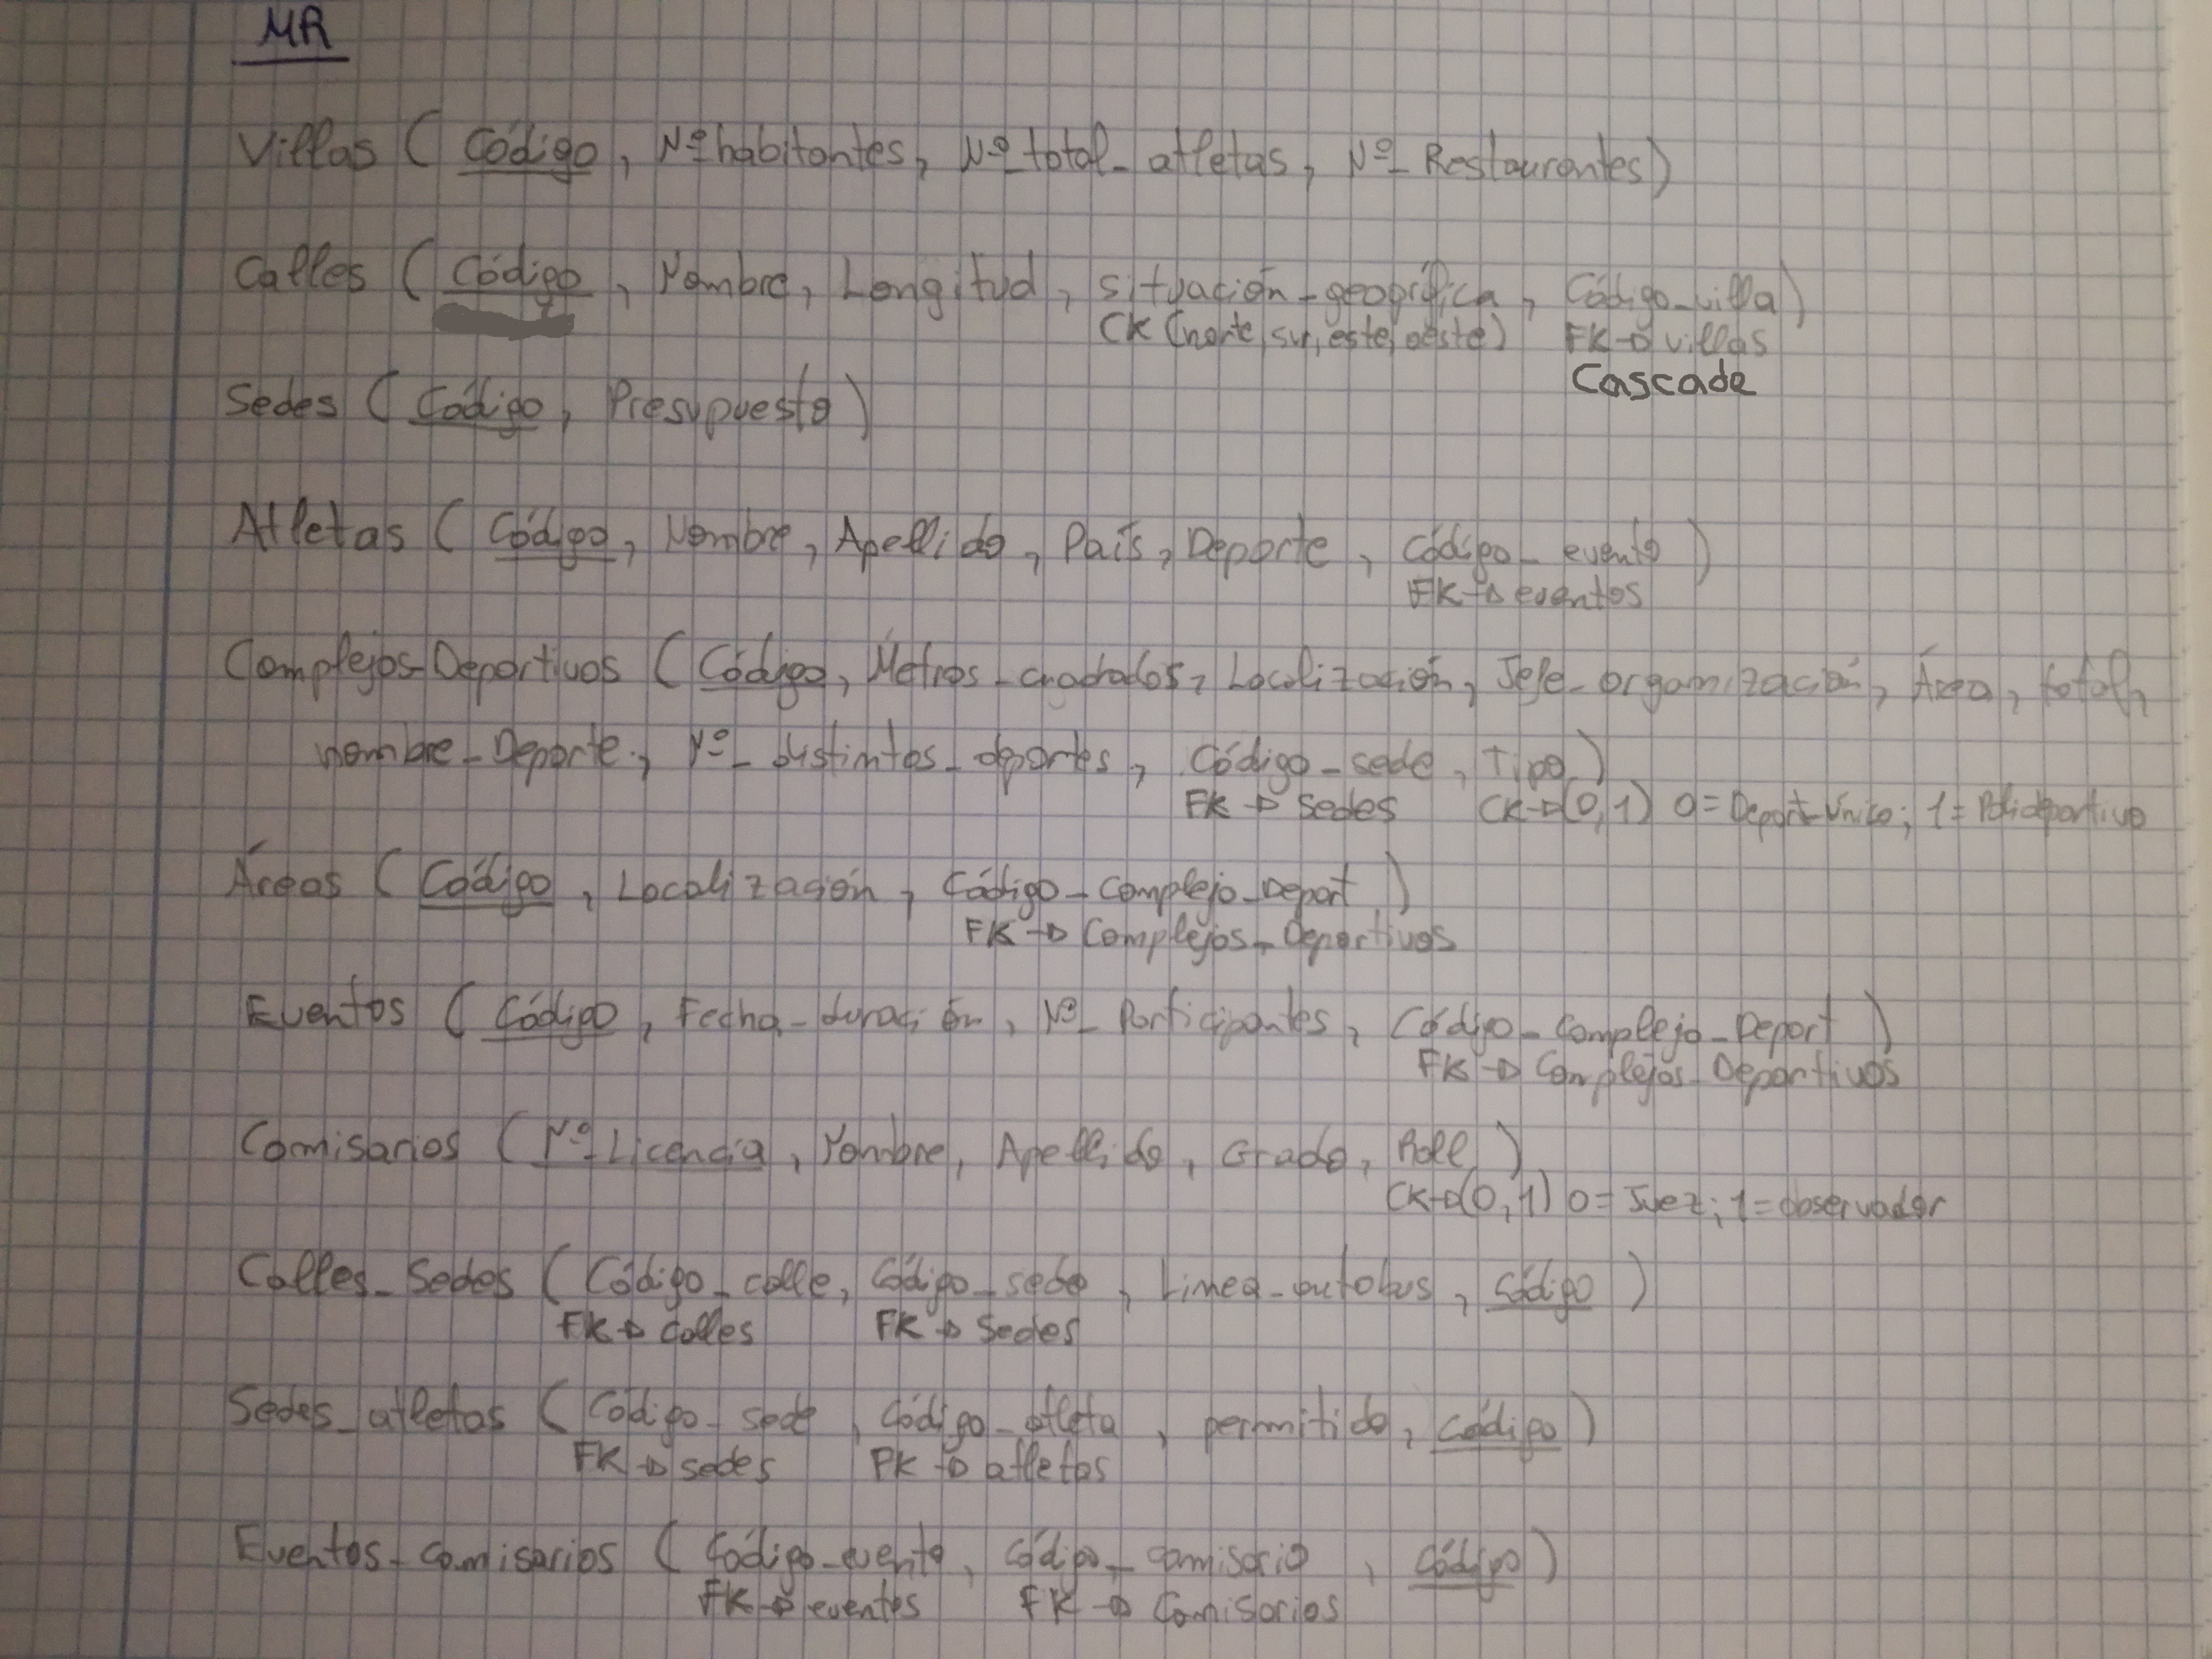 MR
Villas ( Código, Nº habitantes, Nº_total_atletas, Nº_Restaurantes)
Calles ( Código, Nombre, Longitud, situación_geográfica, Código_villa)
CK (norte, sur, este, oeste) FK→villas
Cascade
Sedes ( Código, Presupuesto)
Atletas ( Código, Nombre, Apellido, País, Deporte, código_evento )
FK→eventos
Complejos_Deportivos ( Código, Metros_cuadrados, Localización, Jefe_organización, Área, total,
nombre_Deporte, Nº_distintos_deportes, Código_sede, Tipo)
FK→Sedes CK→(0,1) 0=Deport_único; 1=Polideportivo
Áreas ( Código, Localización, Código_Complejo_Deport )
FK→Complejos_Deportivos
Eventos ( Código, Fecha_duración, Nº_Participantes, Código_Complejo_Deport )
FK→Complejos_Deportivos
Comisarios ( Nº_Licencia, Nombre, Apellido, Grado, Roll )
CK→(0,1) 0=Juez; 1=observador
Calles_Sedes ( Código_calle, Código_sede, Linea_autobus, código )
FK→Calles FK→Sedes
Sedes_atletas ( Código_sede, código_atleta, permitido, código )
FK→sedes FK→atletas
Eventos_comisarios ( Código_evento, código_comisario, código )
FK→eventes FK→Comisarios